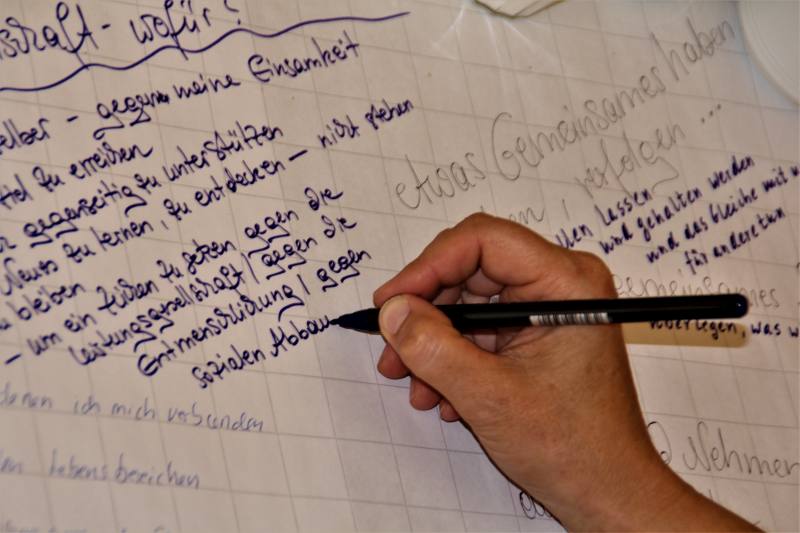 schaft - wofür?
selber - gegen meine Einsamkeit
zu erreichen
gegenseitig zu unterstützen
Neues zu lernen, zu entdecken - nicht stehen
zu bleiben
- um ein Zeichen zu setzen gegen die
Leistungsgesellschaft / gegen die
Entmenschlichung / gegen
sozialen Abbau
denen ich mich verbunden
Lebensbereichen
etwas Gemeinsames haben
verfolgen ...
fallen lassen
und gehalten werden
und das Gleiche mit
für andere tun
Gemeinsames
überlegen, was
Nehmen